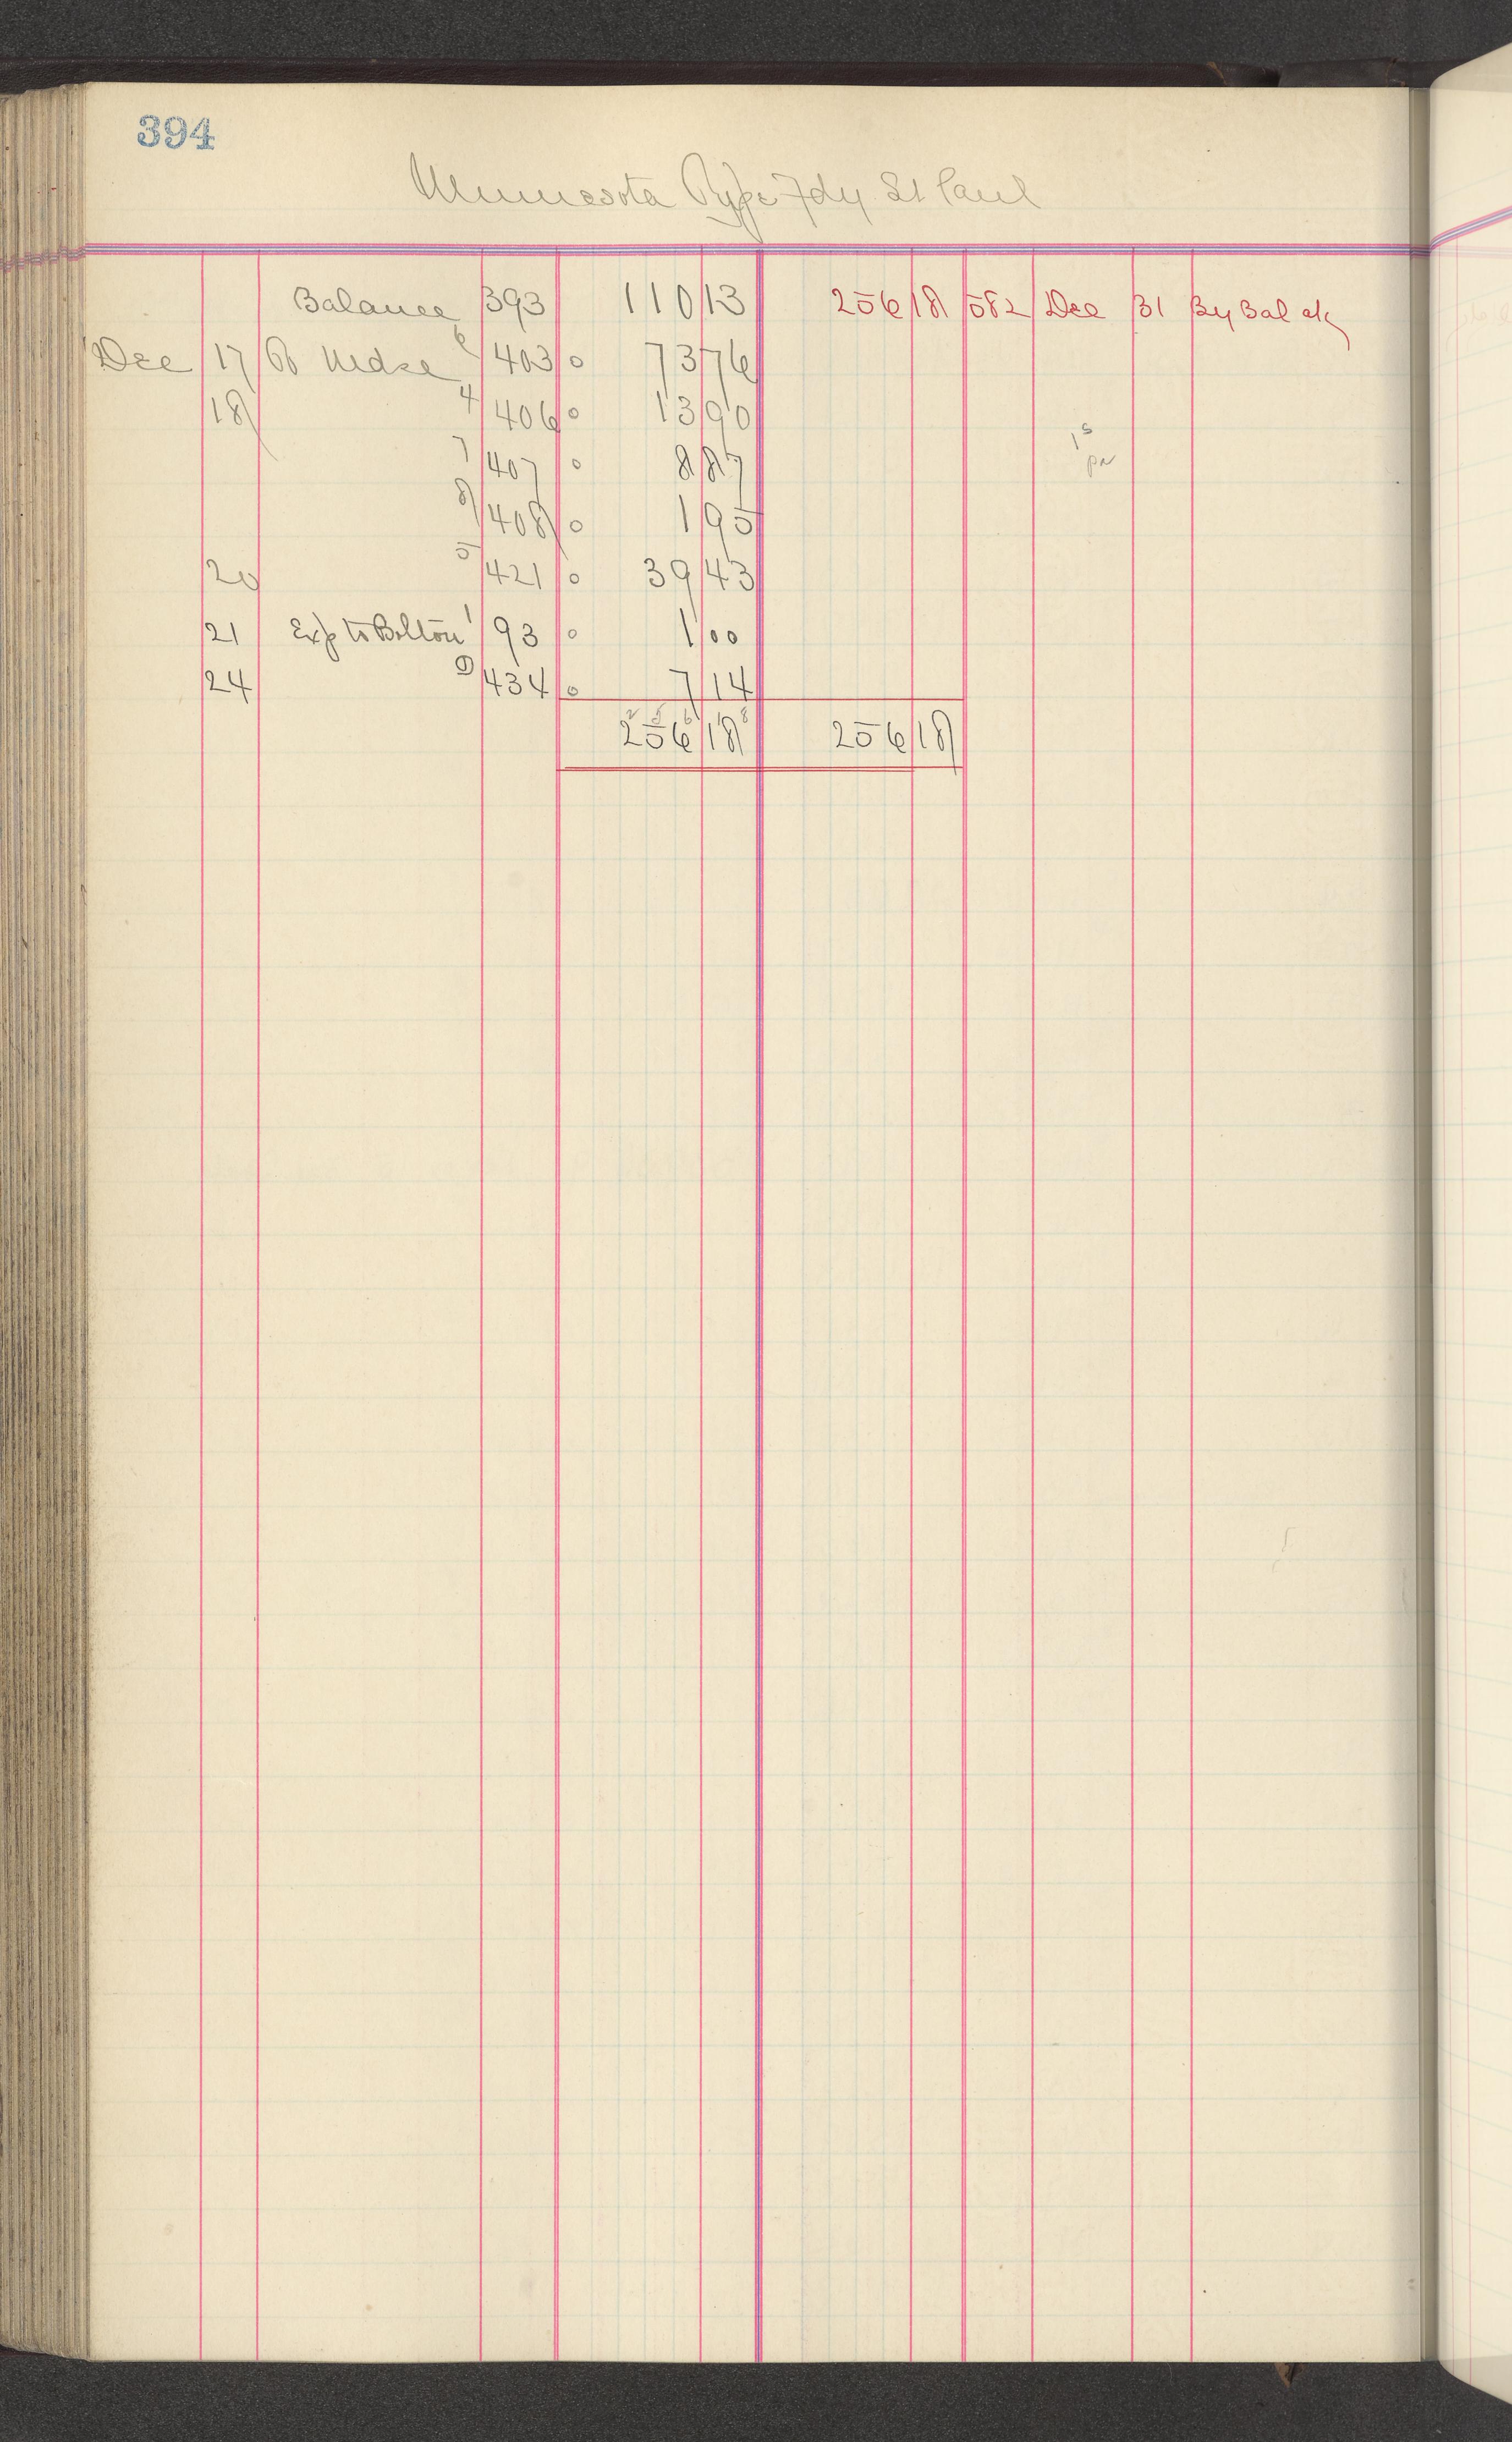 394
Minnesota Type Fdy St Paul
Balance 393 110 13 256 18 582 Dec 31 By Bal a/c
Dec 17 To Mdse 6 403 0 73 76
18 4 406 0 13 90
7 407 0 8 87
8 408 0 1 95
20 5 421 0 39 43
21 Exp to Bolton 1 93 0 1 00
24 434 0 7 14
256 18 256 18